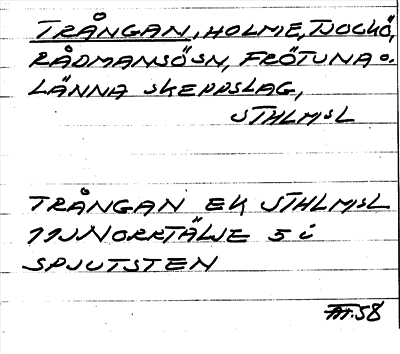 TRÅNGAN, HOLME, TJOCKÖ,
RÅDMANSÖSN, FRÖTUNA O.
LÄNNA SKEPPSLAG,
STHLMSL
TRÅNGAN EK STHLMSL
11J NORRTÄLJE 5 i
SPJUTSTEN
58